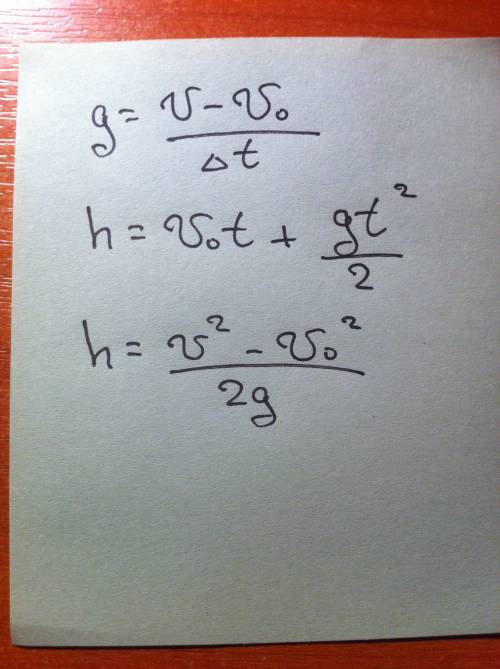 g = (v - v₀) / Δt
h = v₀t + gt² / 2
h = (v² - v₀²) / 2g